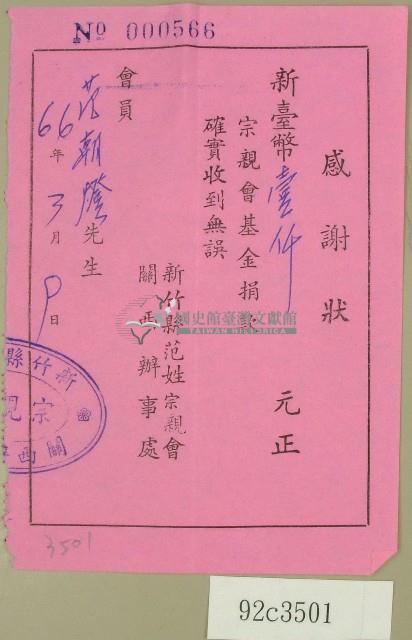 Nº 000566
感謝狀
新臺幣壹仟元正
宗親會基金捐款
確實收到無誤
新竹縣范姓宗親會
關西辦事處
會員范朝燈先生
66年3月9日
新竹縣
宗親
關西
國史館臺灣文獻館
TAIWAN HISTORICA
3501
92c3501